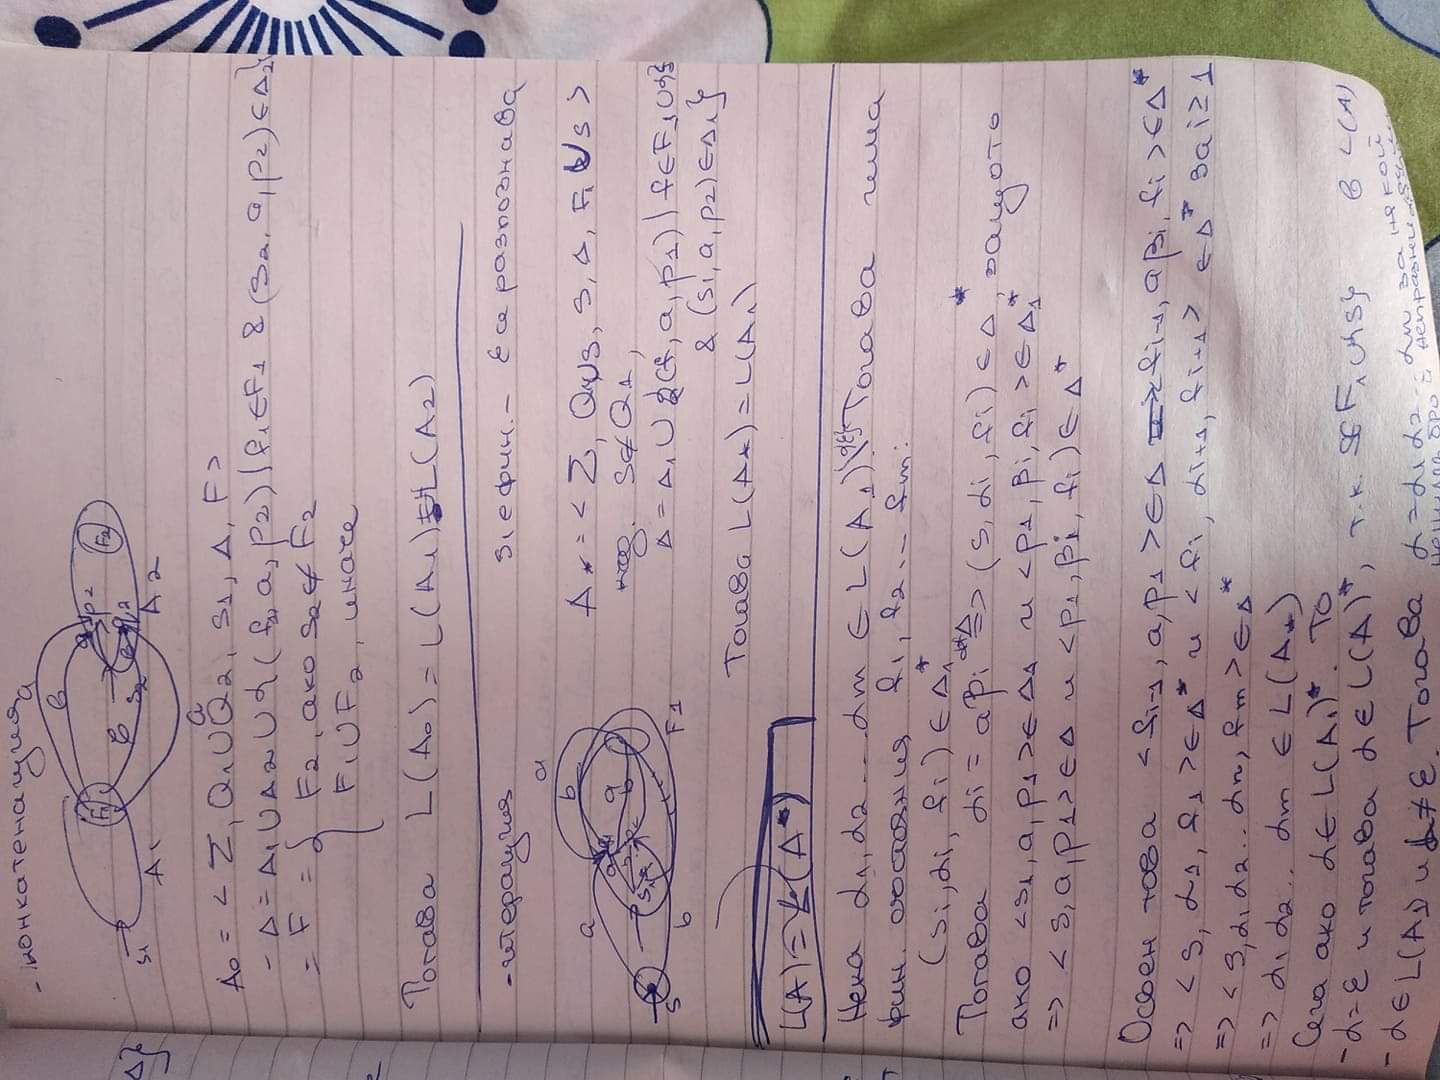 - конкатенация
a
b
a
p2
F1
b
s2
F2
s1
A1
A2
A0 = < Σ, Q1 ∪ Q2, s1, Δ, F >
- Δ = Δ1 ∪ Δ2 ∪ { (f1, a, p2) | f1 ∈ F1 & (s2, a, p2) ∈ Δ2 }
= F = { F2, ако s2 ∉ F2
F1 ∪ F2, иначе
Тогава L(A0) = L(A1) L(A2)
- итерация
s1 е фин. – ε а разпознава
a
b
a
s
s1
b
F1
A* = < Σ, Q1 ∪ s, s, Δ, F1 ∪ s >
s ∉ Q1,
Δ = Δ1 ∪ { (f, a, p1) | f ∈ F1 ∪ {s}
& (s1, a, p1) ∈ Δ1 }
Тогава L(A*) = L(A1)
L(A) = L(A*)
Нека α1, α2 ... αm ∈ L(A1) \ {ε} Тогава има
фин. състояния f1, f2 ... fm:
(s1, αi, fi) ∈ Δ1*
Тогава αi = aβi => (s, αi, fi) ∈ Δ*, защото
ако <s1, a, p1> ∈ Δ1 и <p1, βi, fi> ∈ Δ1*
=> <s, a, p1> ∈ Δ и <p1, βi, fi) ∈ Δ*
Освен това <fi-1, a, p1> ∈ Δ => <fi-1, aβi, fi> ∈ Δ*
=> <s, α1, f1> ∈ Δ* и <fi, αi+1, fi+1> ∈ Δ* за i ≥ 1
=> <s, α1 α2 .. αm, fm> ∈ Δ*
=> α1 α2 .. αm ∈ L(A*)
Сега ако α ∈ L(A1)*. То
- α = ε и тогава α ∈ L(A)*, т.к. s ∈ F1 ∪ {s}
- α ∈ L(A1) и α ≠ ε. Тогава α = α1 α2 .. αm за някой
непразни думи
в L(A)